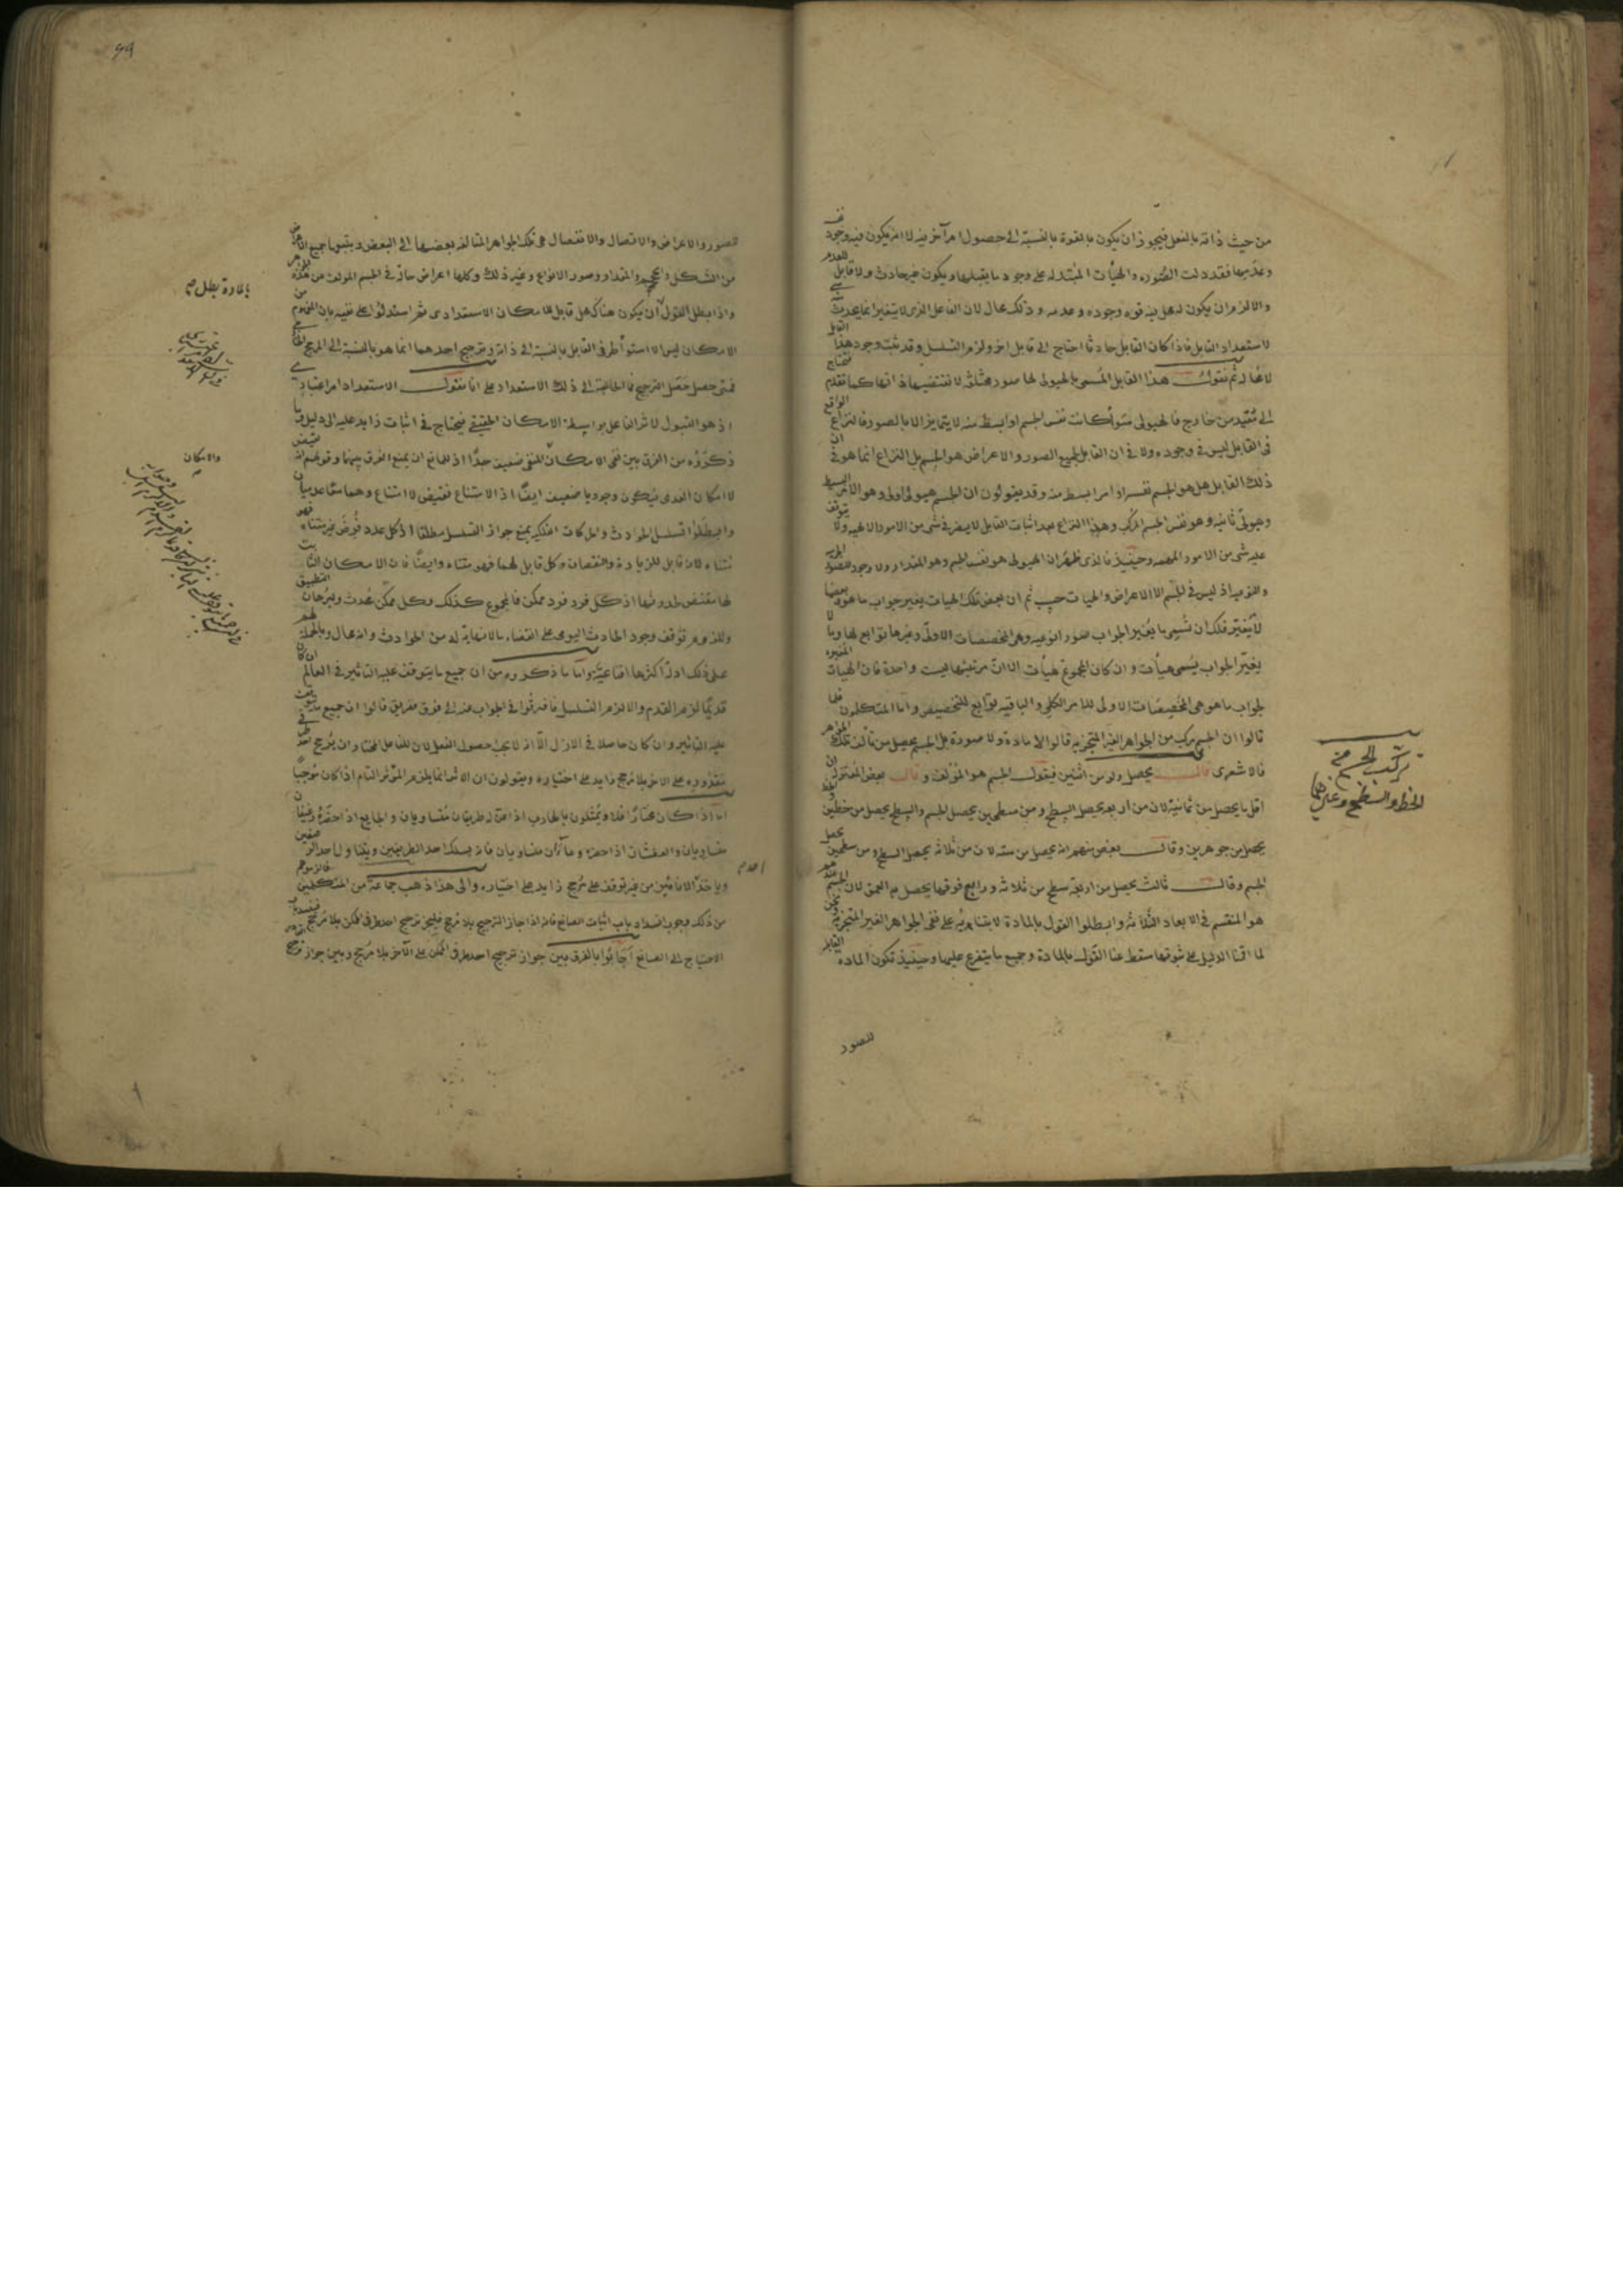 من حيث ذاته بالفعل فيجوز ان يكون بالقوة بالنسبة الى حصول امر آخر فيه لا انه يكون فيه وجود
فقد دلت الصورة والهيأت المتبدله على وجود ما يقبلها ويكون غير حادث ولا قابل للعدم
والا لزم ان يكون له محل فيه قوه وجوده وعدمه وذلك محال لان الفاعل الذى لا يتغير انما يحدث
لاستعداد القابل فاذا كان القابل حادثا احتاج الى قابل اخر ولزم التسلسل وقد ثبت وجود هذا القابل
ثم نقول هذا القابل المسمى بالهيولى لها صور مختلفه لا تقتضيها ذاتها كما تقدم فتحتاج
الى مفيد من خارج فالهيولى سوأ كانت نفس الجسم او ابسط منه لا يتمايز الا بالصور فالنزاع الواقع
فى القابل ليس فى وجوده ولا فى ان القابل لجميع الصور والاعراض هو الجسم بل النزاع انما هو فى ان
ذلك القابل هل هو الجسم نفسه او امر ابسط منه وقد يقولون ان الجسم هيولى اولى وهو الامر البسيط
وهيولى ثانيه وهو نفس الجسم المركب وهذا النزاع بعد اثبات القابل لا يضر فى شى من الامور الالهيه ولا يتوقف
عليه شى من الامور المهمه وحينيذ فالذى ظهر ان الهيولى هو نفس الجسم وهو المقدار ولا وجود للصورة الجرميه
والنوعيه اذ ليس فى الجسم الا الاعراض والهيات حسب ثم ان بعض تلك الهيات يغير جواب ما هو وبعضها
لا يغير فلك ان تسمى ما يغير الجواب صورا نوعيه وهى المخصصات الاولى وغيرها توابع لها وما لا
يغير الجواب يسمى هيأت وان كان المجموع هيأت الا ان مرتبتها ليست واحدة فان الهيات المغيره
لجواب ما هو هى المخصصات الاولى للامر الكلى والباقيه توابع للتخصيص واما المتكلمون فلما
قالوا ان الجسم مركب من الجواهر الغير المتجزيه قالوا لا مادة ولا صورة بل الجسم يحصل من تألف تلك الجواهر
فالاشعرى قال يحصل ولو من اثنين فيقول الجسم هو المؤلف وقال بعض المعتزله ان
اقل ما يحصل من ثمانية لان من اربعه يحصل السطح ومن سطحين يحصل الجسم والسطح يحصل من خطين والخط
يحصل من جوهرين وقال بعض منهم انه يحصل من سته لان من ثلاثه يحصل السطح ومن سطحين يحصل
الجسم وقال ثالث يحصل من اربعة سطح من ثلاثه ورابع فوقها يحصل به العمق لان الجسم عندهم
هو المنقسم فى الابعاد الثلاثه وابطلوا القول بالمادة لابتنايه على نفى الجواهر الغير المتجزيه ونحن
لما اقمنا الدليل على ثبوتها سقط عنا القول بالمادة وجميع ما يتفرع عليها وحينيذ تكون المادة القابله
للصور
تركب الجسم
الخط والسطح وغيرهما
للصور والاعراض والاتصال والانفصال هى تلك الجواهر المتألفه بعضها الى البعض ويتبعها جميع الاعراض
من الشكل والحجم والمقدار وصور الانواع وغير ذلك وكلها اعراض حالة فى الجسم المولف من هذه الجواهر
واذا بطل القول ان يكون هناك محل قابل للامكان الاستعدادى ثم استدلوا على نفيه بان المفهوم من
الامكان ليس الا استوأ طرفى القابل بالنسبة الى ذاته وترجيح احدهما انما هو بالنسبة الى المرجح الخارجى
فمتى حصل حصل الترجيح فلا حاجة الى ذلك الاستعداد على انا نقول الاستعداد امر اعتبارى
اذ هو القبول لاثر الفاعل بواسطة الامكان الحقيقى فيحتاج فى اثبات زايد عليه الى دليل وما
ذكروه من الفرق بين نفى الامكان والامكان المنفى ضعيف جدا اذ للمانع ان يمنع الفرق بينهما وقولهم انه نقيض
لا امكان العدمى فيكون وجوديا ضعيف ايضا اذ الامتناع نقيض لا امتناع وهما معا عدميان
وابطلوا تسلسل الحوادث والحركات الفلكيه بمنع جواز التسلسل مطلقا اذ كل عدد فرض غير متناه فهو
متناه لانه قابل للزيادة والنقصان وكل قابل لهما فهو متناه وايضا فان الامكان الثابت
لها مقتض لحدوثها اذ كل فرد فرد ممكن فالمجموع كذلك وكل ممكن محدث ولبرهان التطبيق
وللزوم توقف وجود الحادث اليومى على انقضاء ما لا نهاية له من الحوادث وانه محال وبالجملة لهم
على ذلك ادلة اكثرها اقناعية واما ما ذكروه من ان جميع ما يتوقف عليه التاثير فى العالم ان كان
قديما لزم القدم والا لزم التسلسل فافترقوا فى الجواب عنه الى فرق ففريق قالوا ان جميع ما يتوقف
عليه التاثير وان كان حاصلا فى الازل الا انه لا يجب حصول الفعل لان للفاعل المختار ان يرجح احد طرفى
مقدوره على الاخر بلا مرجح زايد على اختياره ويقولون ان الاثر انما يلزم المؤثر التام اذا كان موجبا
اما اذا كان مختارا فلا ويمثلون بالهارب اذا عن له طريقان متساويان والجايع اذا حضره رغيفان
متساويان والعطشان اذا حضره ماآن متساويان فانه يسلك احد الطريقين ويتناول احد الرغيفين
وياخذ احد الانائين من غير توقف على مرجح زايد على اختياره والى هذا ذهب جماعة من المتكلمين فالزموهم
من ذلك وجوب انسداد باب اثبات الصانع فانه اذا جاز الترجيح بلا مرجح فليجز ترجيح احد طرفى الممكن بلا مرجح فينسد باب
الاحتياج الى الصانع اجابوا بالفرق بين جواز ترجيح احد طرفى الممكن على الآخر بلا مرجح وبين جواز ترجيح
بالمادة بطل
والامكان